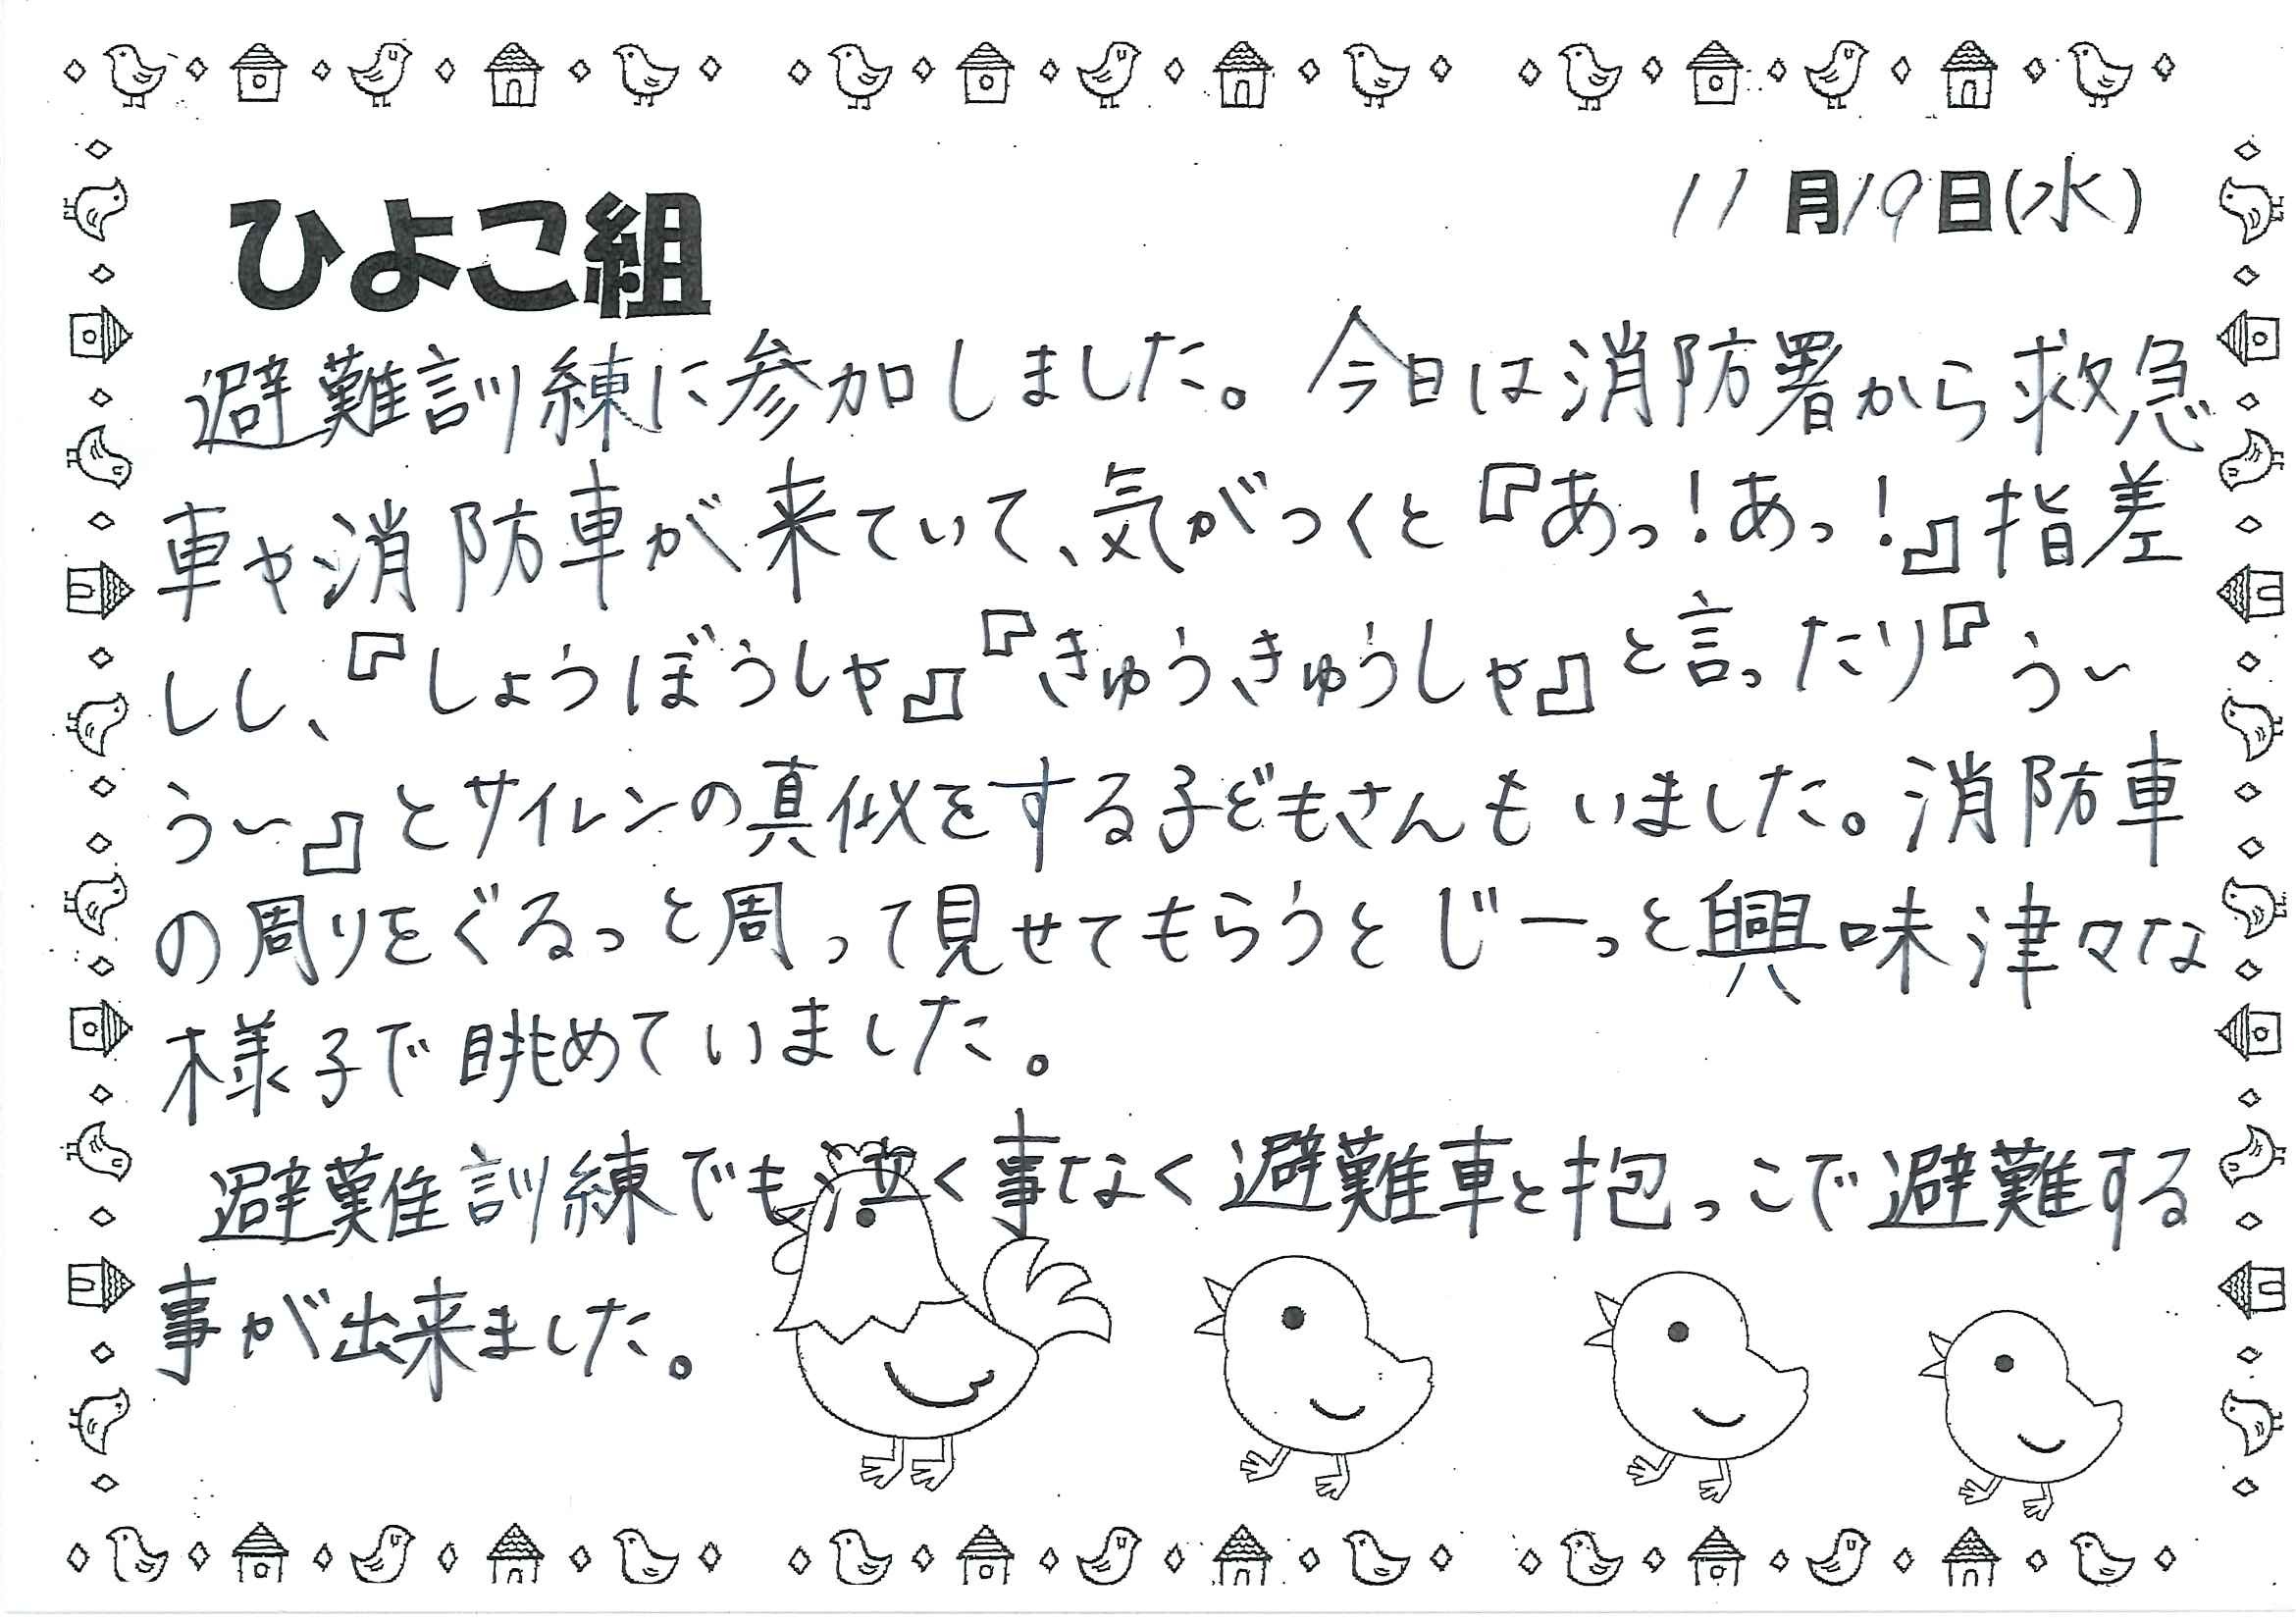 11月19日(水)
ひよこ組
避難訓練に参加しました。今日は消防署から救急
車や消防車が来ていて、気がつくと『あっ!あっ!』指差
しし、『しょうぼうしゃ』『きゅうきゅうしゃ』と言ったり『う〜
う〜』とサイレンの真似をする子どもさんもいました。消防車
の周りをぐるっと周って見せてもらうとじーっと興味津々な
様子で眺めていました。
避難訓練でも泣く事なく避難車と抱っこで避難する
事が出来ました。